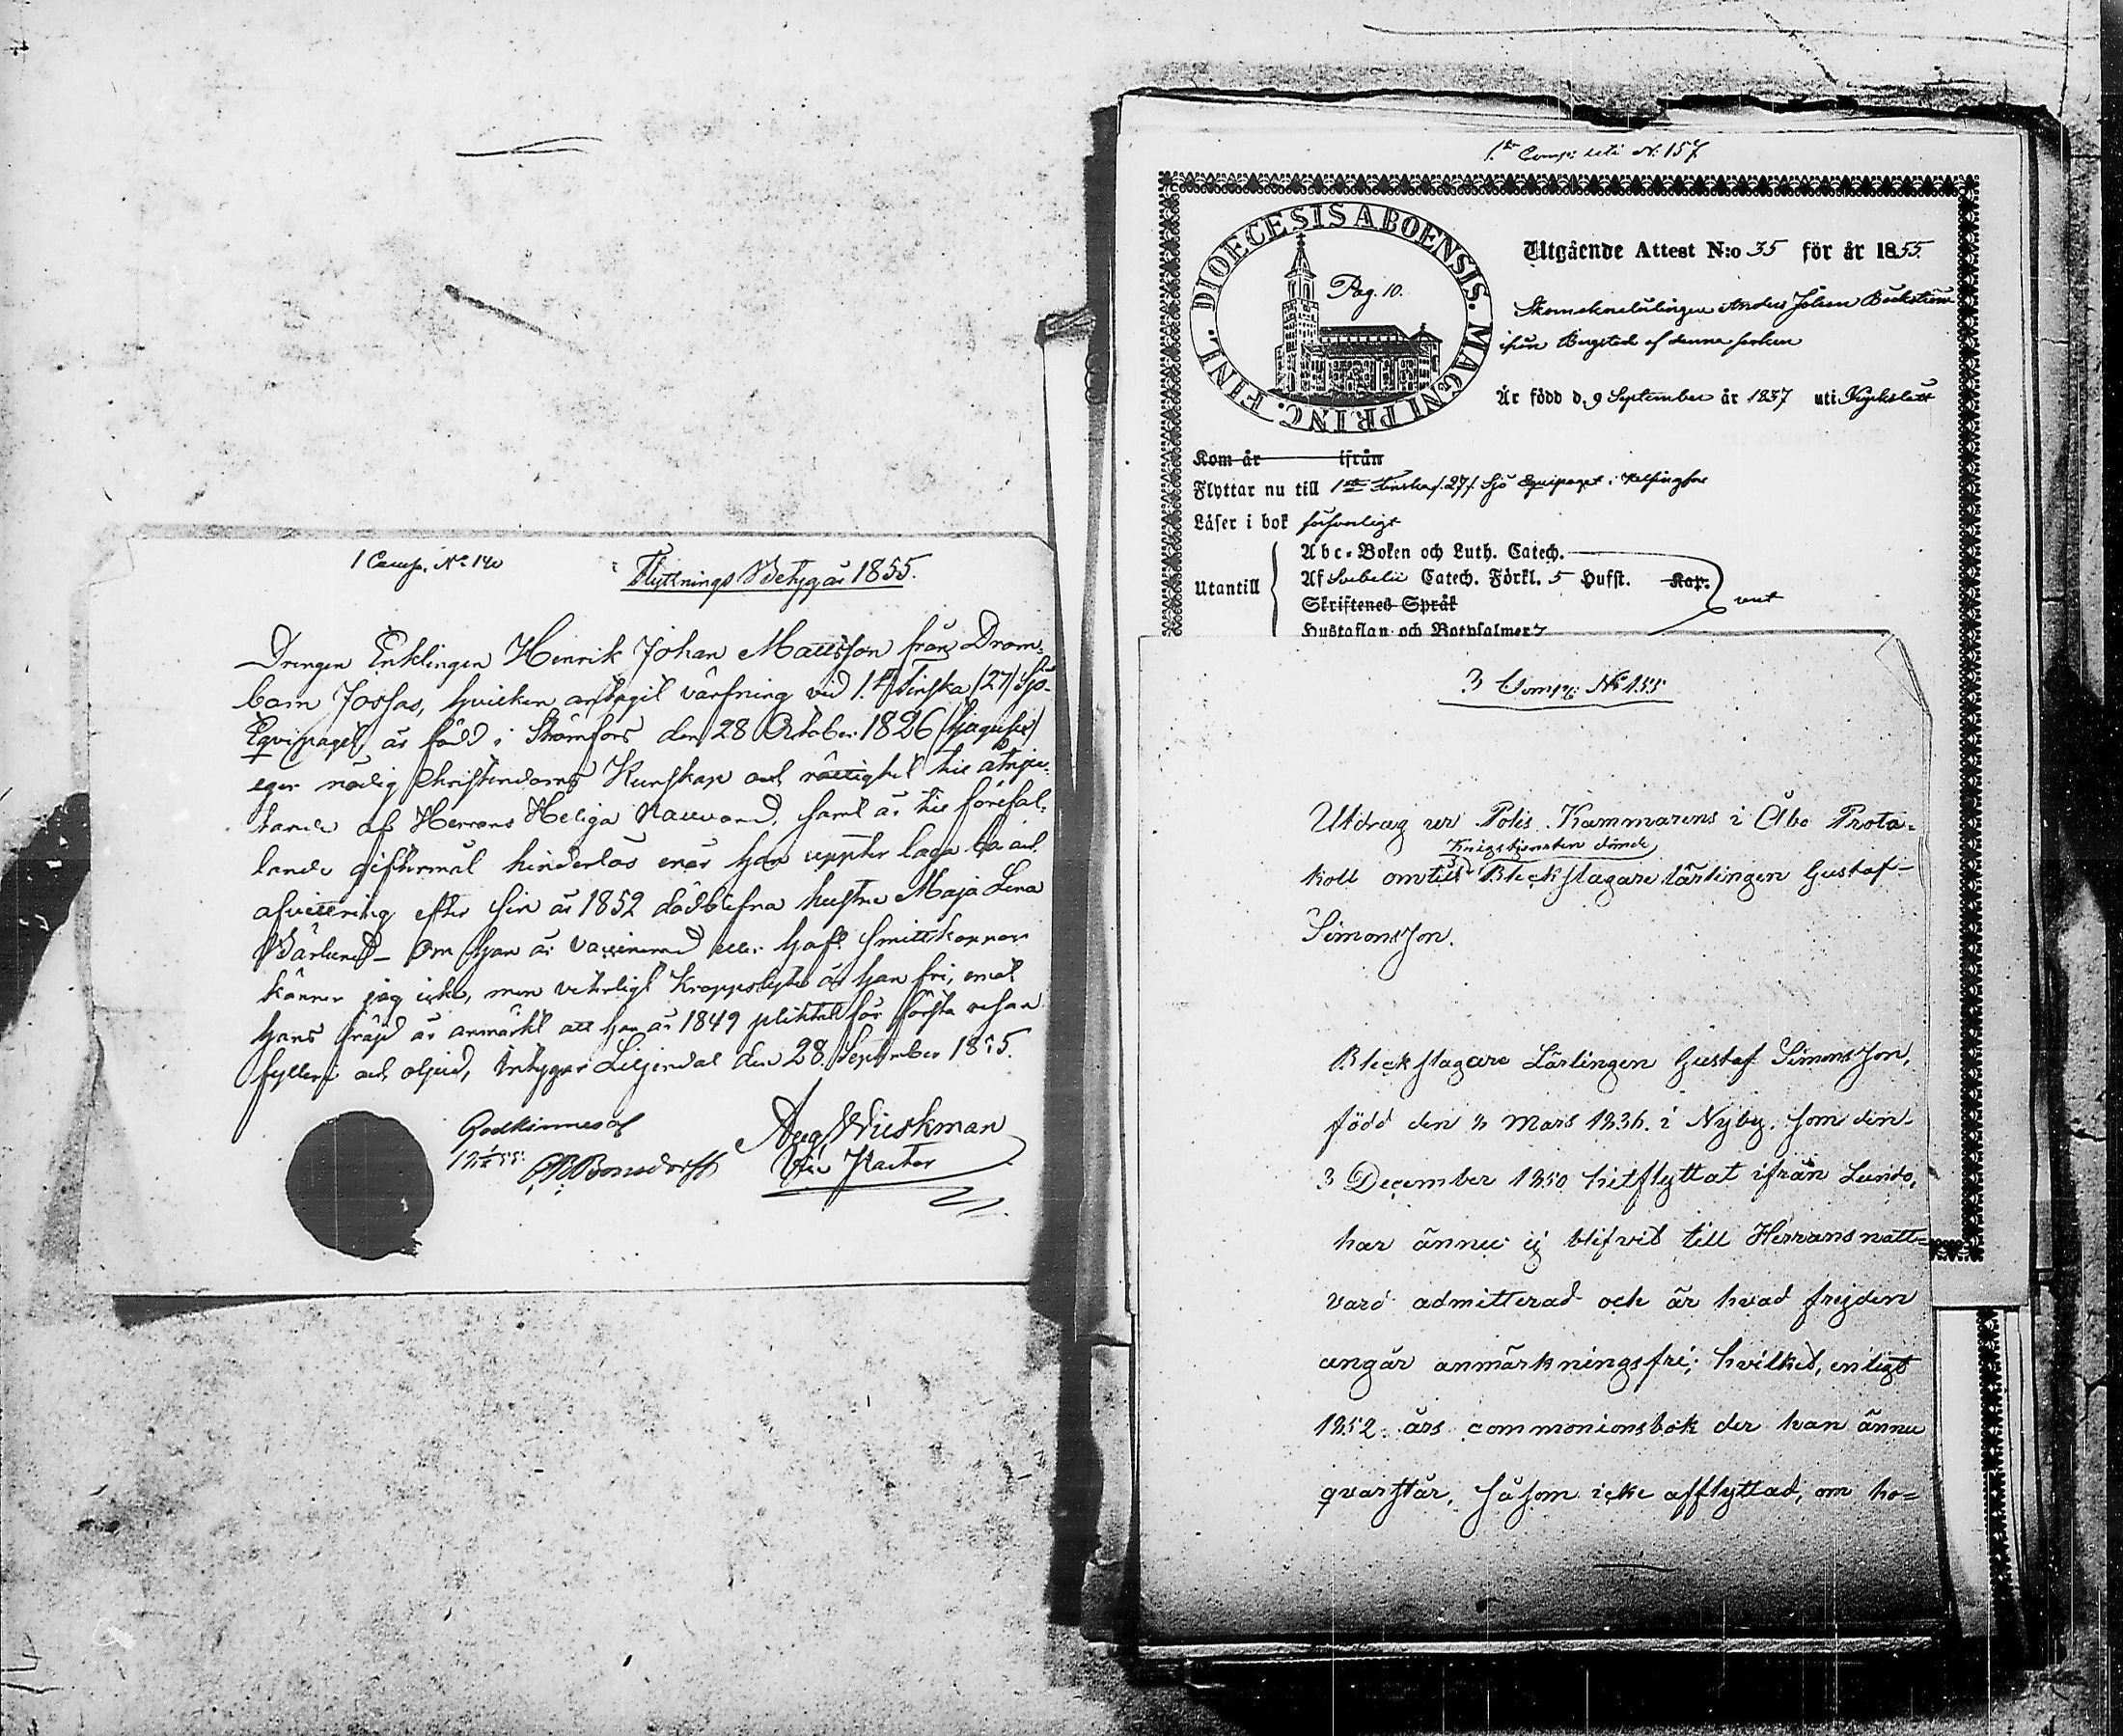 1 Comp. No 140
Flyttnings Betyg år 1855.
Drengen Enklingen Henrik Johan Mattsson från Drom-
bom Jossas, hvilken antagit värfning vid 1:a Finska (27) Sjö-
Equipaget, är född i Strömfors den 28 October 1826 (tjugusex)
eger nödig Christendoms Kunskap och rättighet till åtnju-
tande af Herrans Heliga Nattvard, samt är till förefal-
lande giftermål hinderlös enär han uppter laga bo och
afvittring efter sin år 1852 dödblefna hustru Maja Lena
Bärlund – Om han är vaccinerad eller haft smittkoppor
känner jag icke, men veterligt Kroppslyte är han fri, emot
hans fräjd är anmärkt att han år 1849 pliktat för första resan
fylleri och oljud, Intygar Liljendal den 28. September 1855.
Godkännes af
Aug. Wieskman
Vice Pastor
1ten Comp: N. 157
DIOECESIS ABOENSIS. MAGNI PRINC. FINL.
Pag. 10.
Utgående Attest N:o 35 för år 1855.
Skomakarelärlingen Anders Johan Bäckström
ifrån Bergstad af denna socken
Är född d. 9 September år 1837 uti Kyrkslätt
Kom år ifrån
Flyttar nu till 1sta Finska /:27:/ Sjö Equipaget i Helsingfors
Läser i bok försvarligt
Utantill
Abc-Boken och Luth. Catech.
Af Svebelii Catech. Förkl. 5 Hufst. Kap.
Skriftenes Språk
Hustaflan och Botpsalmer
3 Comp: No 155
Utdrag ur Polis Kammarens i Åbo Proto-
Krigstjensten dömde
koll om till Bleckslagare lärlingen Gustaf
Simonsson.
Bleckslagare Lärlingen Gustaf Simonsson,
född den 4 Mars 1836. i Nyby, som den
3 December 1850 hitflyttat ifrån Lundo,
har ännu ej blifvit till Herrans natt-
vard admitterad och är hvad frejden
angår anmärkningsfri; hvilket, enligt
1852 års commonionsbok der han ännu
qvarstår, såsom icke afflyttad, om ho-